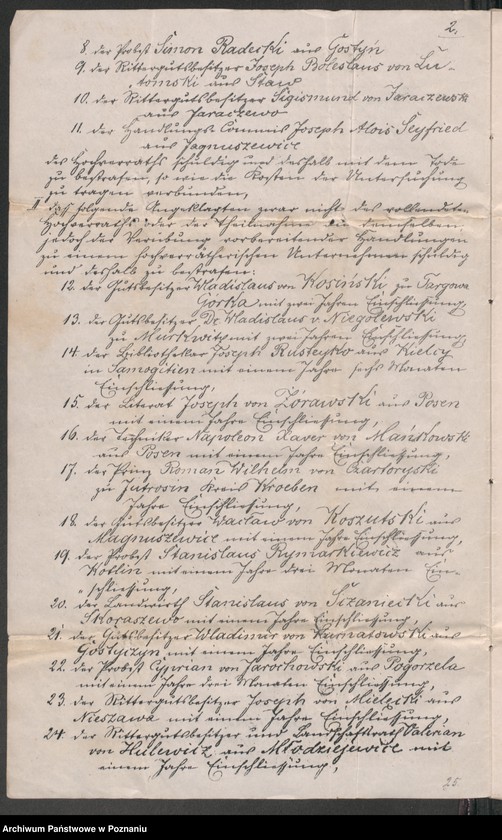 2.
8. der Probst Simon Radecki aus Gostyń
9. der Rittergutsbesitzer Joseph Boleslaus von Lu-
tomski aus Staw
10. der Rittergutsbesitzer Sigismund von Jaraczewski
aus Jaraczewo
11. der Handlungs Commis Joseph Alois Seyfried
aus Jagnuszewice
des Hochverraths schuldig und deshalb mit dem Tode
zu bestrafen, so wie die Kosten der Untersuchung
zu tragen verbunden,
II daß folgende Angeklagten zwar nicht des vollendeten
Hochverraths oder der Theilnahme an demselben
jedoch der Verübung vorbereitender Handlungen
zu einem hochverrätherischen Unternehmen schuldig
und deshalb zu bestrafen:
12. der Gutsbesitzer Wladislaus von Kosiński zu Targowa
Gorka mit zwei Jahren Einschließung,
13. der Gutsbesitzer Dr Wladislaus v. Niegolewski
zu Murkwitz mit zwei Jahren Einschließung,
14. der Bibliothekar Joseph Rusteyko aus Kielcy
in Samogitien mit einem Jahre sechs Monaten
Einschließung,
15. der Literat Joseph von Żórawski aus Posen
mit einem Jahre Einschließung,
16. der Techniker Napoleon Xaver von Mańkowski
aus Posen mit einem Jahre Einschließung,
17. der Prinz Roman Wilhelm von Czartoryski
zu Jutrosin Kreis Kroeben mit einem
Jahre Einschließung,
18. der Gutsbesitzer Waclaw von Koszutski aus
Magnuszewice mit einem Jahre Einschließung,
19. der Probst Stanislaus Rymarkiewicz aus
Kotlin mit einem Jahre drei Monaten Ein-
schließung,
20. der Landwirth Stanislaus von Sczaniecki aus
Skoraszewo mit einem Jahre Einschließung,
21. der Gutsbesitzer Wladimir von Kurnatowski aus
Gostyczyn mit einem Jahre Einschließung,
22. der Probst Cyprian von Jarochowski aus Pogorzela
mit einem Jahre drei Monaten Einschließung,
23. der Rittergutsbesitzer Joseph von Mielęcki aus
Nieszawa mit einem Jahre Einschließung,
24. der Rittergutsbesitzer und Landschaftsrath Valerian
von Hulewicz aus Młodziejewice mit
einem Jahre Einschließung,
25
Archiwum Państwowe w Poznaniu